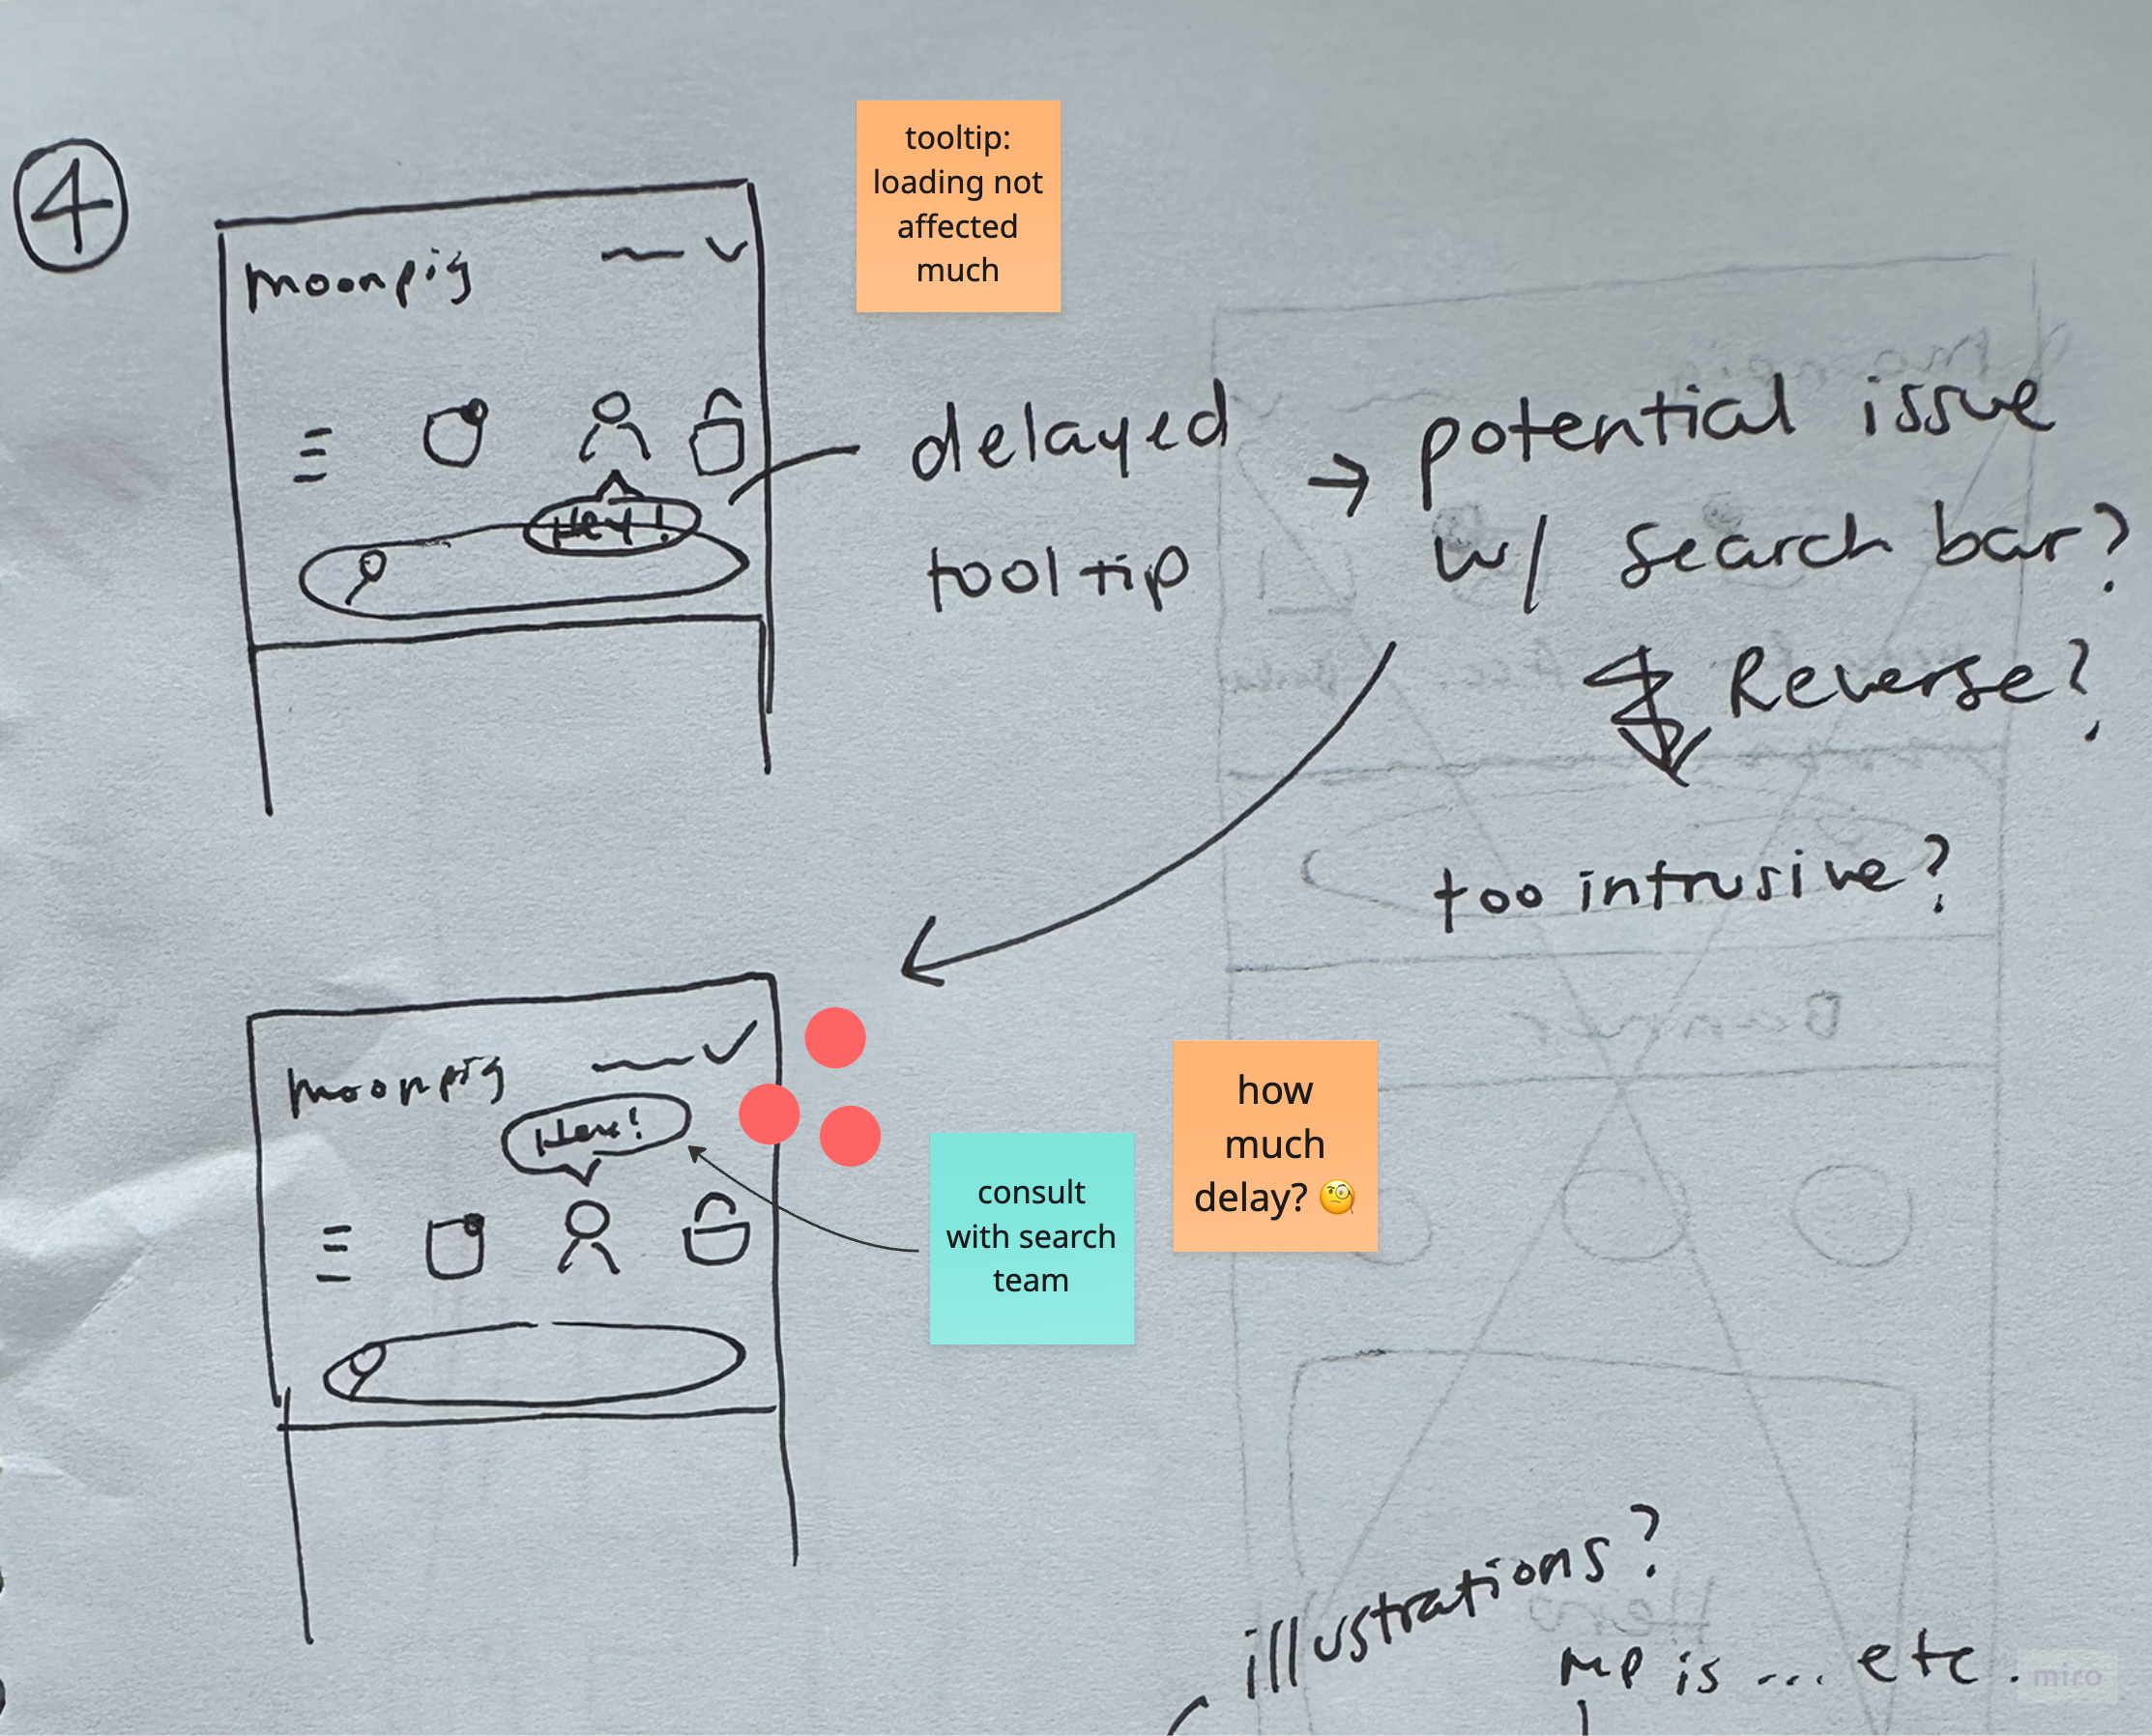 4
moonpig
Hey!
tooltip:
loading not
affected
much
delayed
tooltip
→ potential issue
w/ search bar?
Reverse?
too intrusive?
moonpig
consult
with search
team
how
much
delay? 🧐
illustrations?
MP is ... etc.
miro